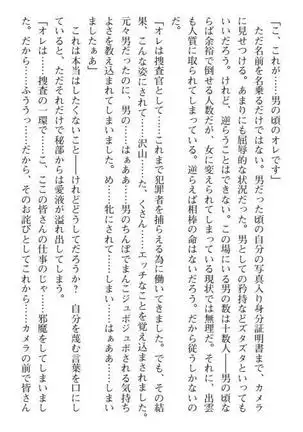 「こ、これが……男の頃のオレです」
　ただ名前を名乗るだけではない。男だった頃の自分の写真入り身分証明書まで、カメラ
に見せつける。あまりにも屈辱的な状況だった。男としての矜持などズタズタといっても
いいだろう。けれど、逆らうことはできない。この場にいる男の数は十数人――男の頃な
らば余裕で倒せる人数だが、女に変えられてしまっている現状では無理だ。それに、出雲
も人質に取られてしまっている。逆らえば相棒の命はないだろう。だから従うしかないの
だ。
「オレは捜査官として……これまで犯罪者を捕らえる為に働いてきました。でも、その結
果、こんな姿にされて……沢山……た、くさん……エッチなことを覚え込まされました。
元々男だったのに、男の……はぁああ……男のちんぽでまんこジュボジュボされる気持ち
よさを教え込まされてしまいました。め……牝にされて……しまい……はぁあああ……しまい
ましたぁぁ」
　これは本当はしたくないこと――けれどどうしてだろうか？　自分を蔑む言葉を口にし
ていると、ただそれだけで秘部からは愛液が溢れ出してしまう。
「オレは……捜査の一環で……こ、ここの皆さんの仕事のじゃ……邪魔をしてしまいまし
た。だから……ふううっ……だから、そのお詫びとしてこれから……カメラの前で皆さん